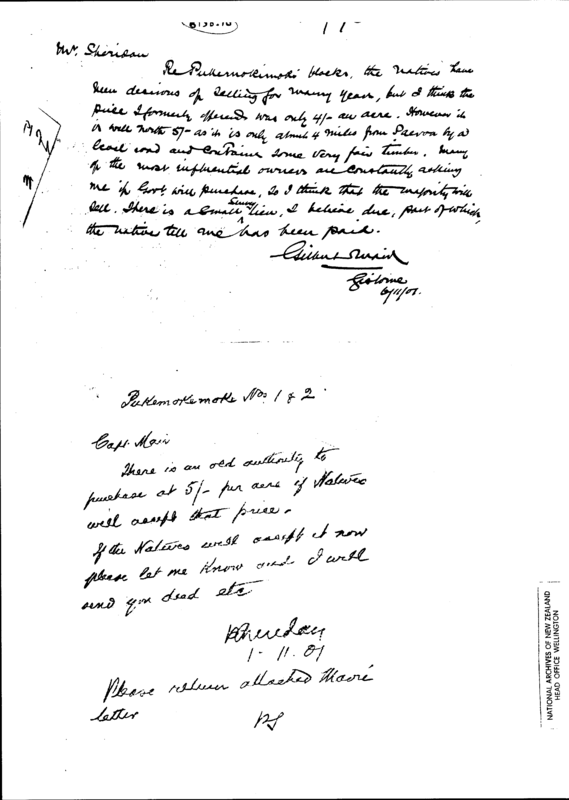 Mr. Sheridan
Re Pukemokimoki blocks, the natives have
been desirous of selling for many years, but I think the
price I formerly offered was only 4/- an acre. However it
is well worth 5/- as it is only about 4 miles from Paeroa by a
level road and contains some very fair timber. Many
of the most influential owners are constantly asking
me if Govt will purchase, so I think that the majority will
sell. There is a small Survey lien, I believe, due, part of which,
the natives tell me has been paid.
Gilbert Mair
Gisborne
6/11/01.
Pukemokemoke Nos 1 & 2
Capt. Mair
There is an old authority to
purchase at 5/- per acre if Natives
will accept that price.
If the Natives will accept it now
please let me know and I will
send you deed etc
P Sheridan
1.11.01
Please return attached Maori
letter
PS
NATIONAL ARCHIVES OF NEW ZEALAND
HEAD OFFICE WELLINGTON